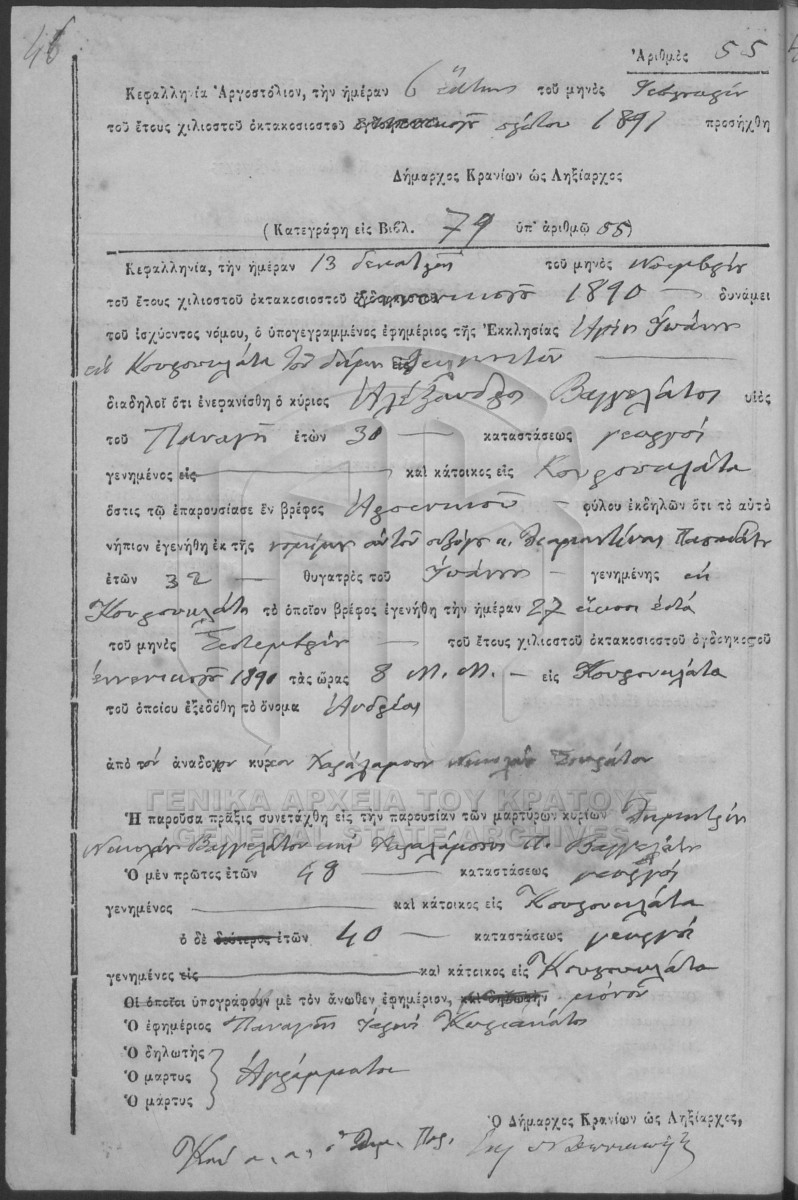 46
Ἀριθμὸς 55
Κεφαλληνία Ἀργοστόλιον, τὴν ἡμέραν 6 ἕκτην τοῦ μηνὸς
τοῦ ἔτους χιλιοστοῦ ὀκτακοσιοστοῦ πρώτου 1891 προσήχθη
Δήμαρχος Κρανίων ὡς Ληξίαρχος
(Κατεγράφη εἰς Βιβλ. 79 ὑπ' ἀριθμῷ 55)
Κεφαλληνία, τὴν ἡμέραν 13 δεκάτην τοῦ μηνὸς Νοεμβρίου
τοῦ ἔτους χιλιοστοῦ ὀκτακοσιοστοῦ 1890 — δυνάμει
τοῦ ἰσχύοντος νόμου, ὁ ὑπογεγραμμένος ἐφημέριος τῆς Ἐκκλησίας Ἁγίου Ἰωάννου
εἰς Κουρουκλάτα τοῦ δήμου
διαδηλοῖ ὅτι ἐνεφανίσθη ὁ κύριος Ἀλέξανδρος Βαγγελάτος υἱὸς
τοῦ Παναγῆ ἐτῶν 30 — καταστάσεως γεωργός
γενημένος εἰς — καὶ κάτοικος εἰς Κουρουκλάτα
ὅστις τῷ ἐπαρουσίασε ἓν βρέφος Ἀρσενικοῦ — φύλου ἐκδηλῶν ὅτι τὸ αὐτὸ
νήπιον ἐγενήθη ἐκ τῆς νομίμου αὐτοῦ συζύγου κ.
ἐτῶν 32 — θυγατρὸς τοῦ Ἰωάννου — γενημένης εἰς
Κουρουκλάτα τὸ ὁποῖον βρέφος ἐγενήθη τὴν ἡμέραν 27 εἴκοσι ἑπτά
τοῦ μηνὸς Σεπτεμβρίου — τοῦ ἔτους χιλιοστοῦ ὀκτακοσιοστοῦ ὀγδοηκοστοῦ
ἐννενηκοστοῦ 1890 τὰς ὥρας 8 Μ.Μ. — εἰς Κουρουκλάτα
τοῦ ὁποίου ἐξεδόθη τὸ ὄνομα Ἀνδρέας
ἀπὸ τὸν ἀνάδοχον κύριον Χαράλαμπον Νικολάου
ΓΕΝΙΚΑ ΑΡΧΕΙΑ ΤΟΥ ΚΡΑΤΟΥΣ
Ἡ παροῦσα πρᾶξις συνετάχθη εἰς τὴν παρουσίαν τῶν μαρτύρων κυρίων Δημητρίου
GENERAL STATE ARCHIVES
Νικολάου Βαγγελάτου καὶ Χαραλάμπους Π. Βαγγελάτου
Ὁ μὲν πρῶτος ἐτῶν 48 — καταστάσεως γεωργός
γενημένος — καὶ κάτοικος εἰς Κουρουκλάτα
ὁ δὲ δεύτερος ἐτῶν 40 — καταστάσεως γεωργός
γενημένος εἰς — καὶ κάτοικος εἰς Κουρουκλάτα
Οἱ ὁποῖοι ὑπογράφουν μὲ τὸν ἄνωθεν ἐφημέριον, μόνον
Ὁ ἐφημέριος Παναγῆς Ἱερεύς
Ὁ δηλωτὴς
Ὁ μάρτυς } Ἀγράμματοι
Ὁ μάρτυς
Ὁ Δήμαρχος Κρανίων ὡς Ληξίαρχος,
ὁ Δημ. Παρ.